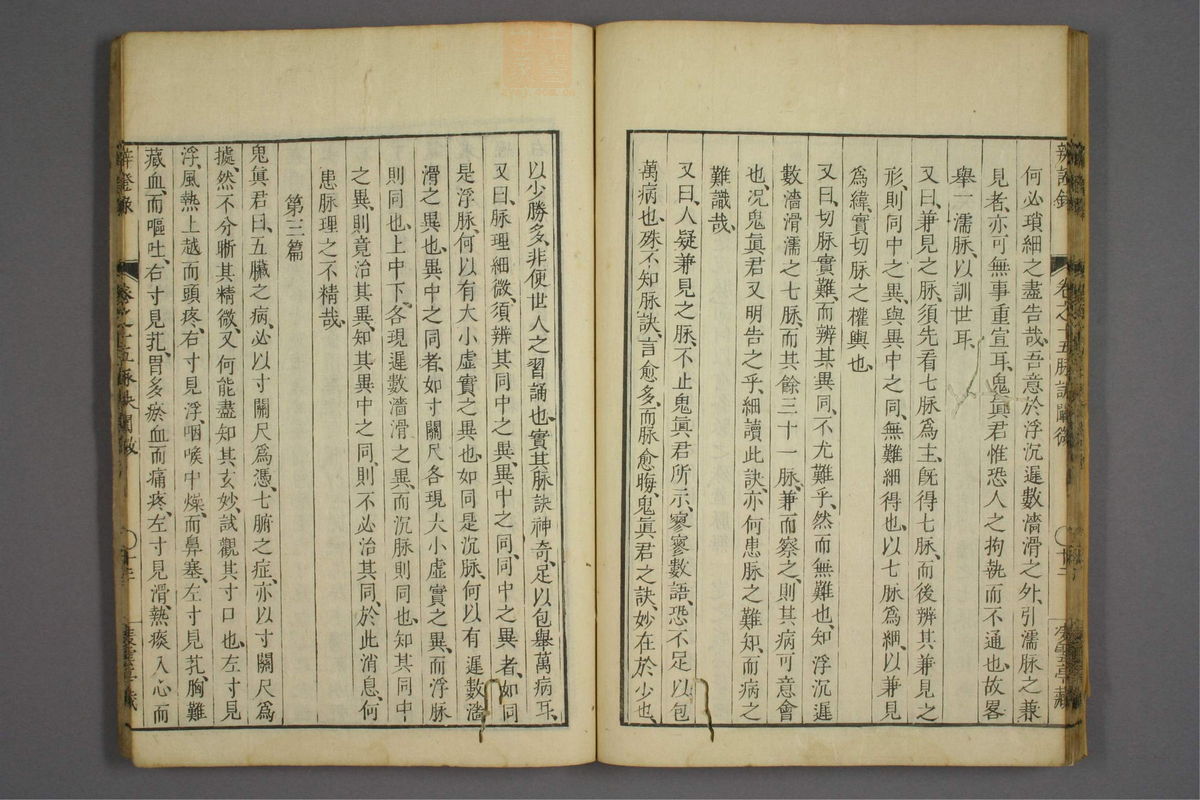 何必瑣細之盡告哉、吾意於浮沉遲數濇滑之外、引濡脈之兼
見者、亦可無事重宣耳、鬼眞君惟恐人之拘執而不通也、故畧
舉一濡脈、以訓世耳、
又曰、兼見之脈、須先看七脈爲主、旣得七脈、而後辨其兼見之
形、則同中之異、與異中之同、無難細得也、以七脈爲綱、以兼見
爲緯、實切脈之權輿也、
又曰、切脈實難、而辨其異同、不尤難乎、然而無難也、知浮沉遲
數濇滑濡之七脈、而其餘三十一脈、兼而察之、則其病可意會
也、况鬼眞君又明告之乎、細讀此訣、亦何患脈之難知、而病之
難識哉、
又曰、人疑兼見之脈、不止鬼眞君所示、寥寥數語、恐不足以包
萬病也、殊不知脈訣、言愈多、而脈愈晦、鬼眞君之訣、妙在於少也、
以少勝多、非便世人之習誦也、實其脈訣神奇、足以包舉萬病耳、
又曰、脈理細微、須辨其同中之異、異中之同、同中之異者、如同
是浮脈、何以有大小虛實之異也、如同是沉脈、何以有遲數濇
滑之異也、異中之同者、如寸關尺各現大小虛實之異、而浮脈
則同也、上中下、各現遲數濇滑之異、而沉脈則同也、知其同中
之異、則竟治其異、知其異中之同、則不必治其同、於此消息、何
患脈理之不精哉、
第三篇
鬼眞君曰、五臟之病、必以寸關尺爲憑、七腑之症、亦以寸關尺爲
據、然不分晰其精微、又何能盡知其玄妙、試觀其寸口也、左寸見
浮、風熱上越而頭疼、右寸見浮、咽喉中燥、而鼻塞、左寸見芤、胸難
藏血、而嘔吐、右寸見芤、胃多瘀血而痛疼、左寸見滑、熱痰入心而